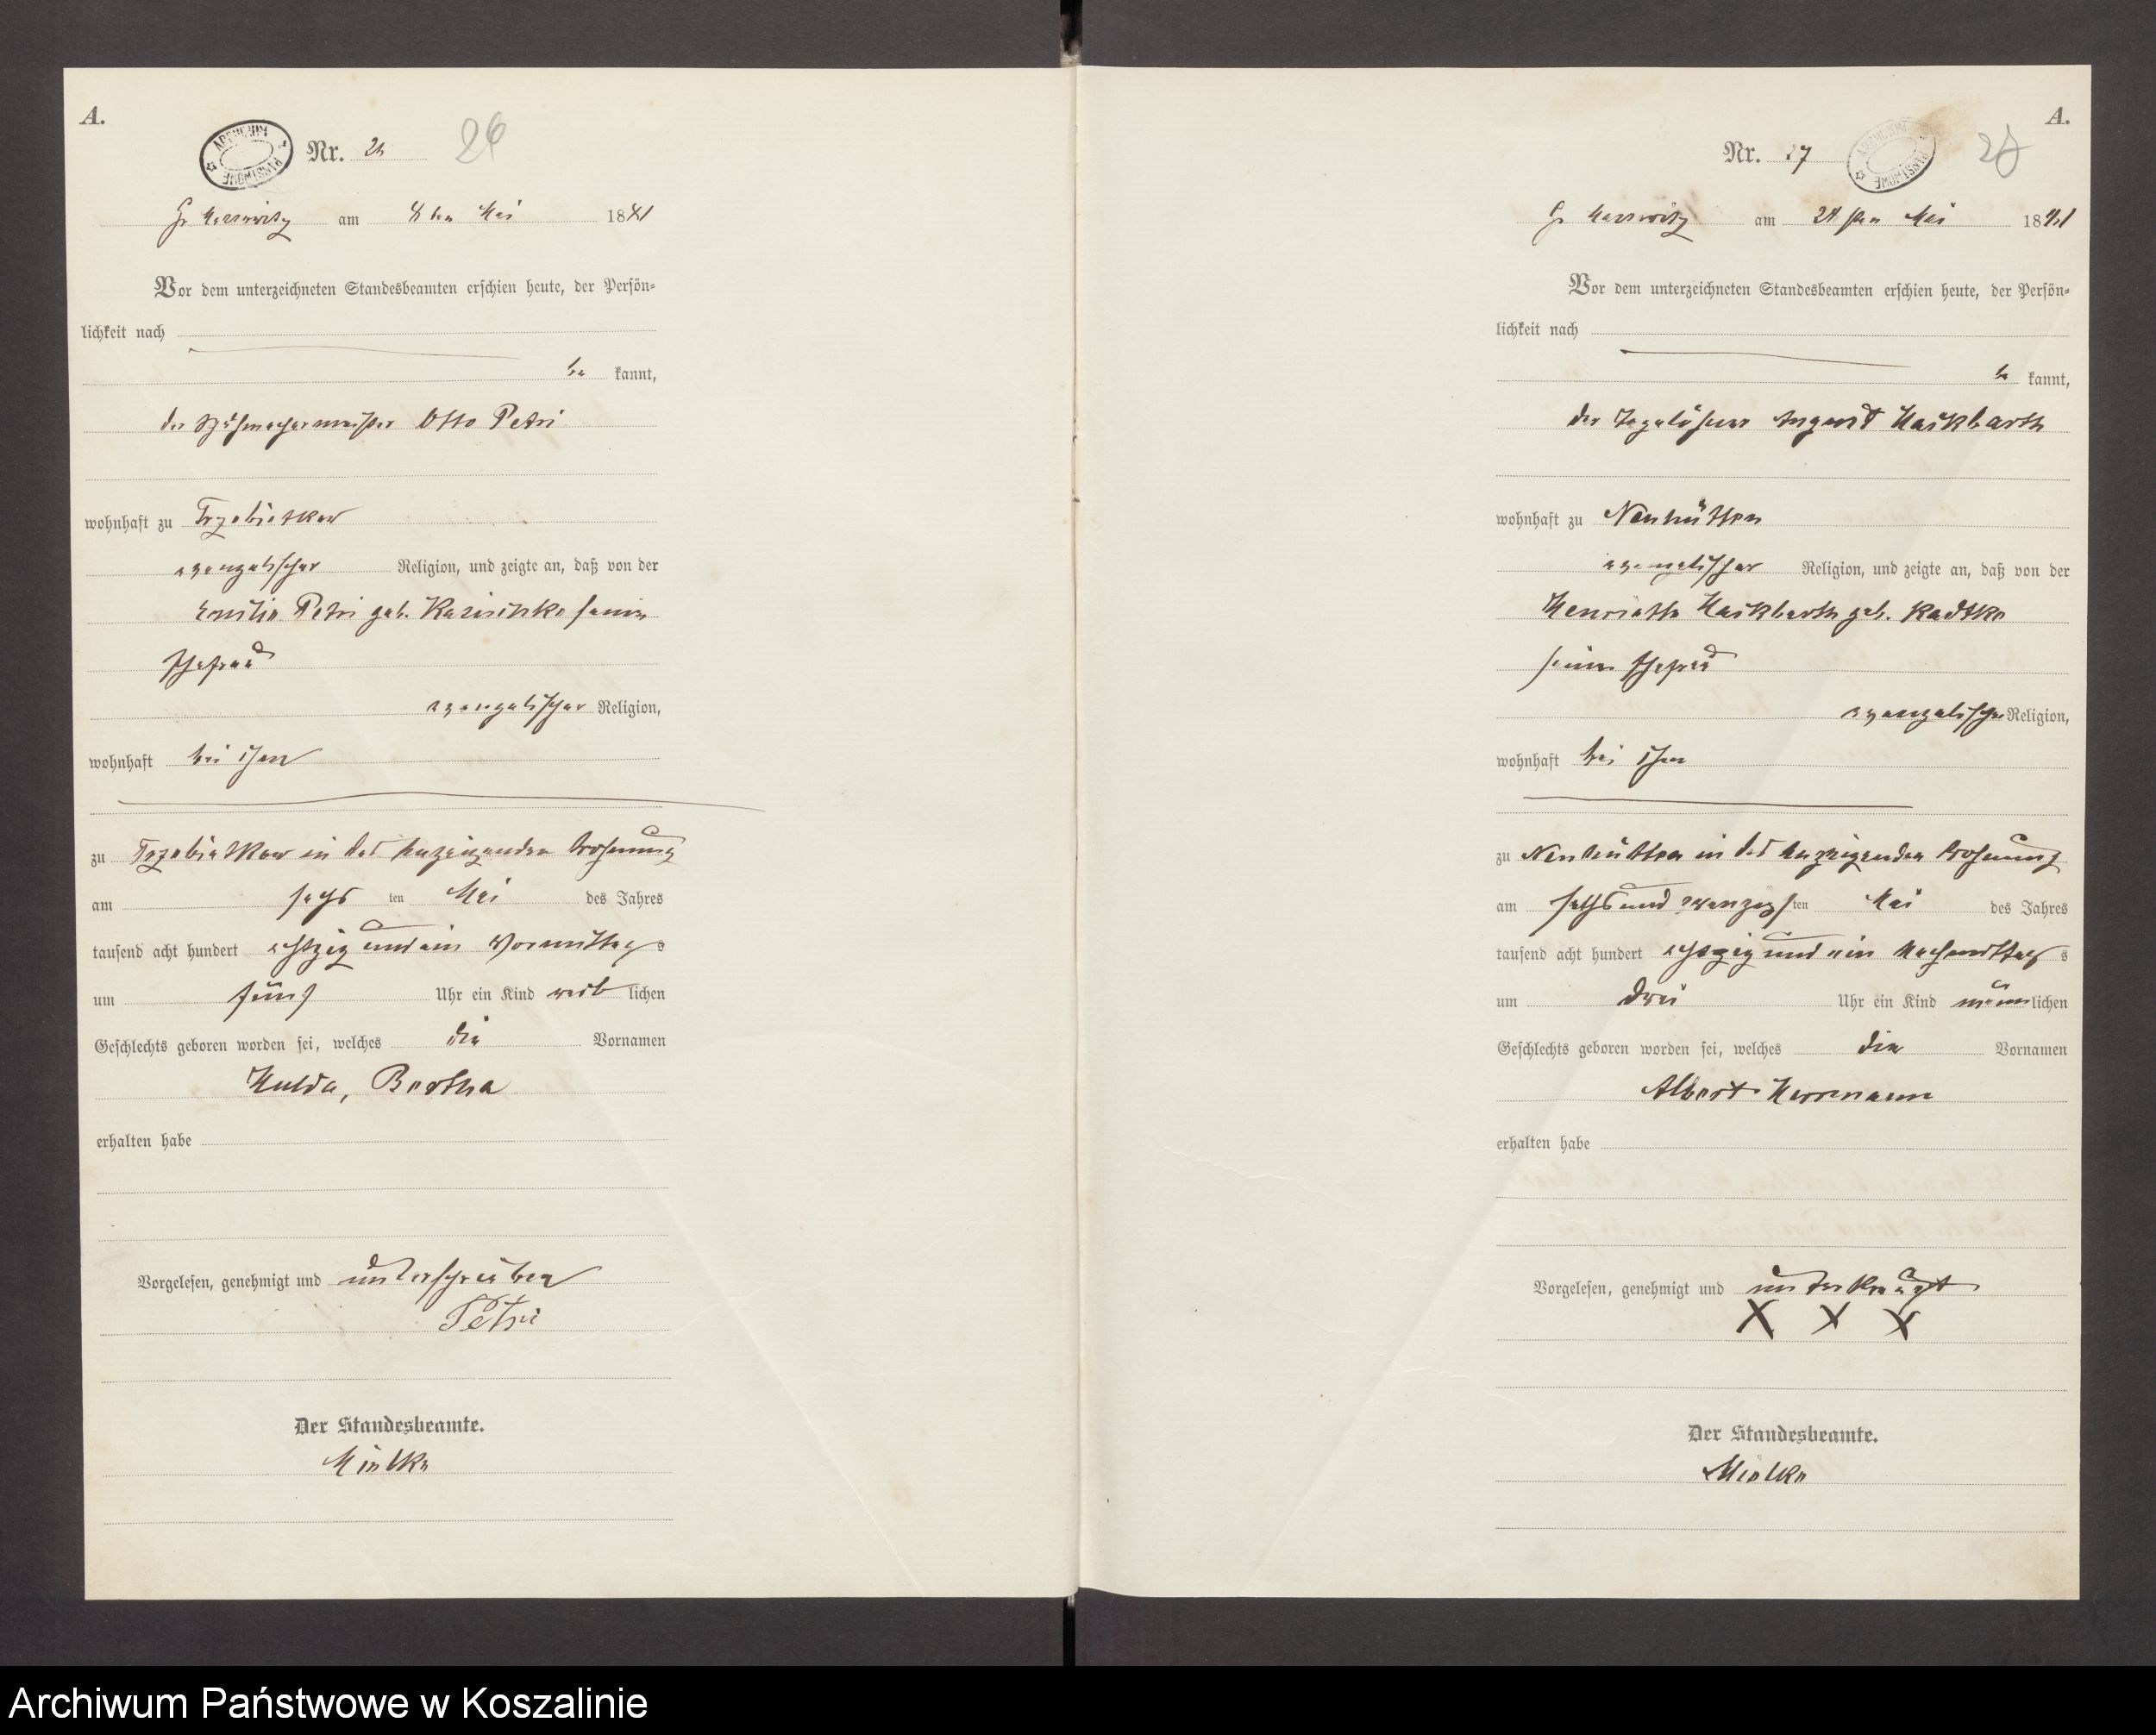 A.
ARCHIWUM PAŃSTWOWE
Nr. 26
26
Gr. Massowitz am 8 ten Mai 1881
Vor dem unterzeichneten Standesbeamten erschien heute, der Persön=
lichkeit nach
be kannt,
der Otto Petri
wohnhaft zu Trzebiatkow
evangelischer Religion, und zeigte an, daß von der
Emilie Petri geb. seiner
Ehefrau
evangelischer Religion,
wohnhaft bei ihm
zu Trzebiatkow in des Anzeigenden Wohnung
am sechs ten Mai des Jahres
tausend acht hundert achtzig und ein Vormittag s
um fünf Uhr ein Kind weib lichen
Geschlechts geboren worden sei, welches die Vornamen
Hulda, Bertha
erhalten habe
Vorgelesen, genehmigt und unterschrieben
Petri
Der Standesbeamte.
Mielke
A.
Nr. 27
ARCHIWUM PAŃSTWOWE
27
Gr. Massowitz am 28 sten Mai 1881
Vor dem unterzeichneten Standesbeamten erschien heute, der Persön=
lichkeit nach
be kannt,
der Tagelöhner August Hackbarth
wohnhaft zu Neuhütten
evangelischer Religion, und zeigte an, daß von der
Henriette Hackbarth geb. Radtke
seiner Ehefrau
evangelischer Religion,
wohnhaft bei ihm
zu Neuhütten in des Anzeigenden Wohnung
am sechs und zwanzigs ten Mai des Jahres
tausend acht hundert achtzig und ein Nachmittag s
um drei Uhr ein Kind männ lichen
Geschlechts geboren worden sei, welches die Vornamen
Albert Herrmann
erhalten habe
Vorgelesen, genehmigt und unterkreuzt
X X X
Der Standesbeamte.
Mielke
Archiwum Państwowe w Koszalinie